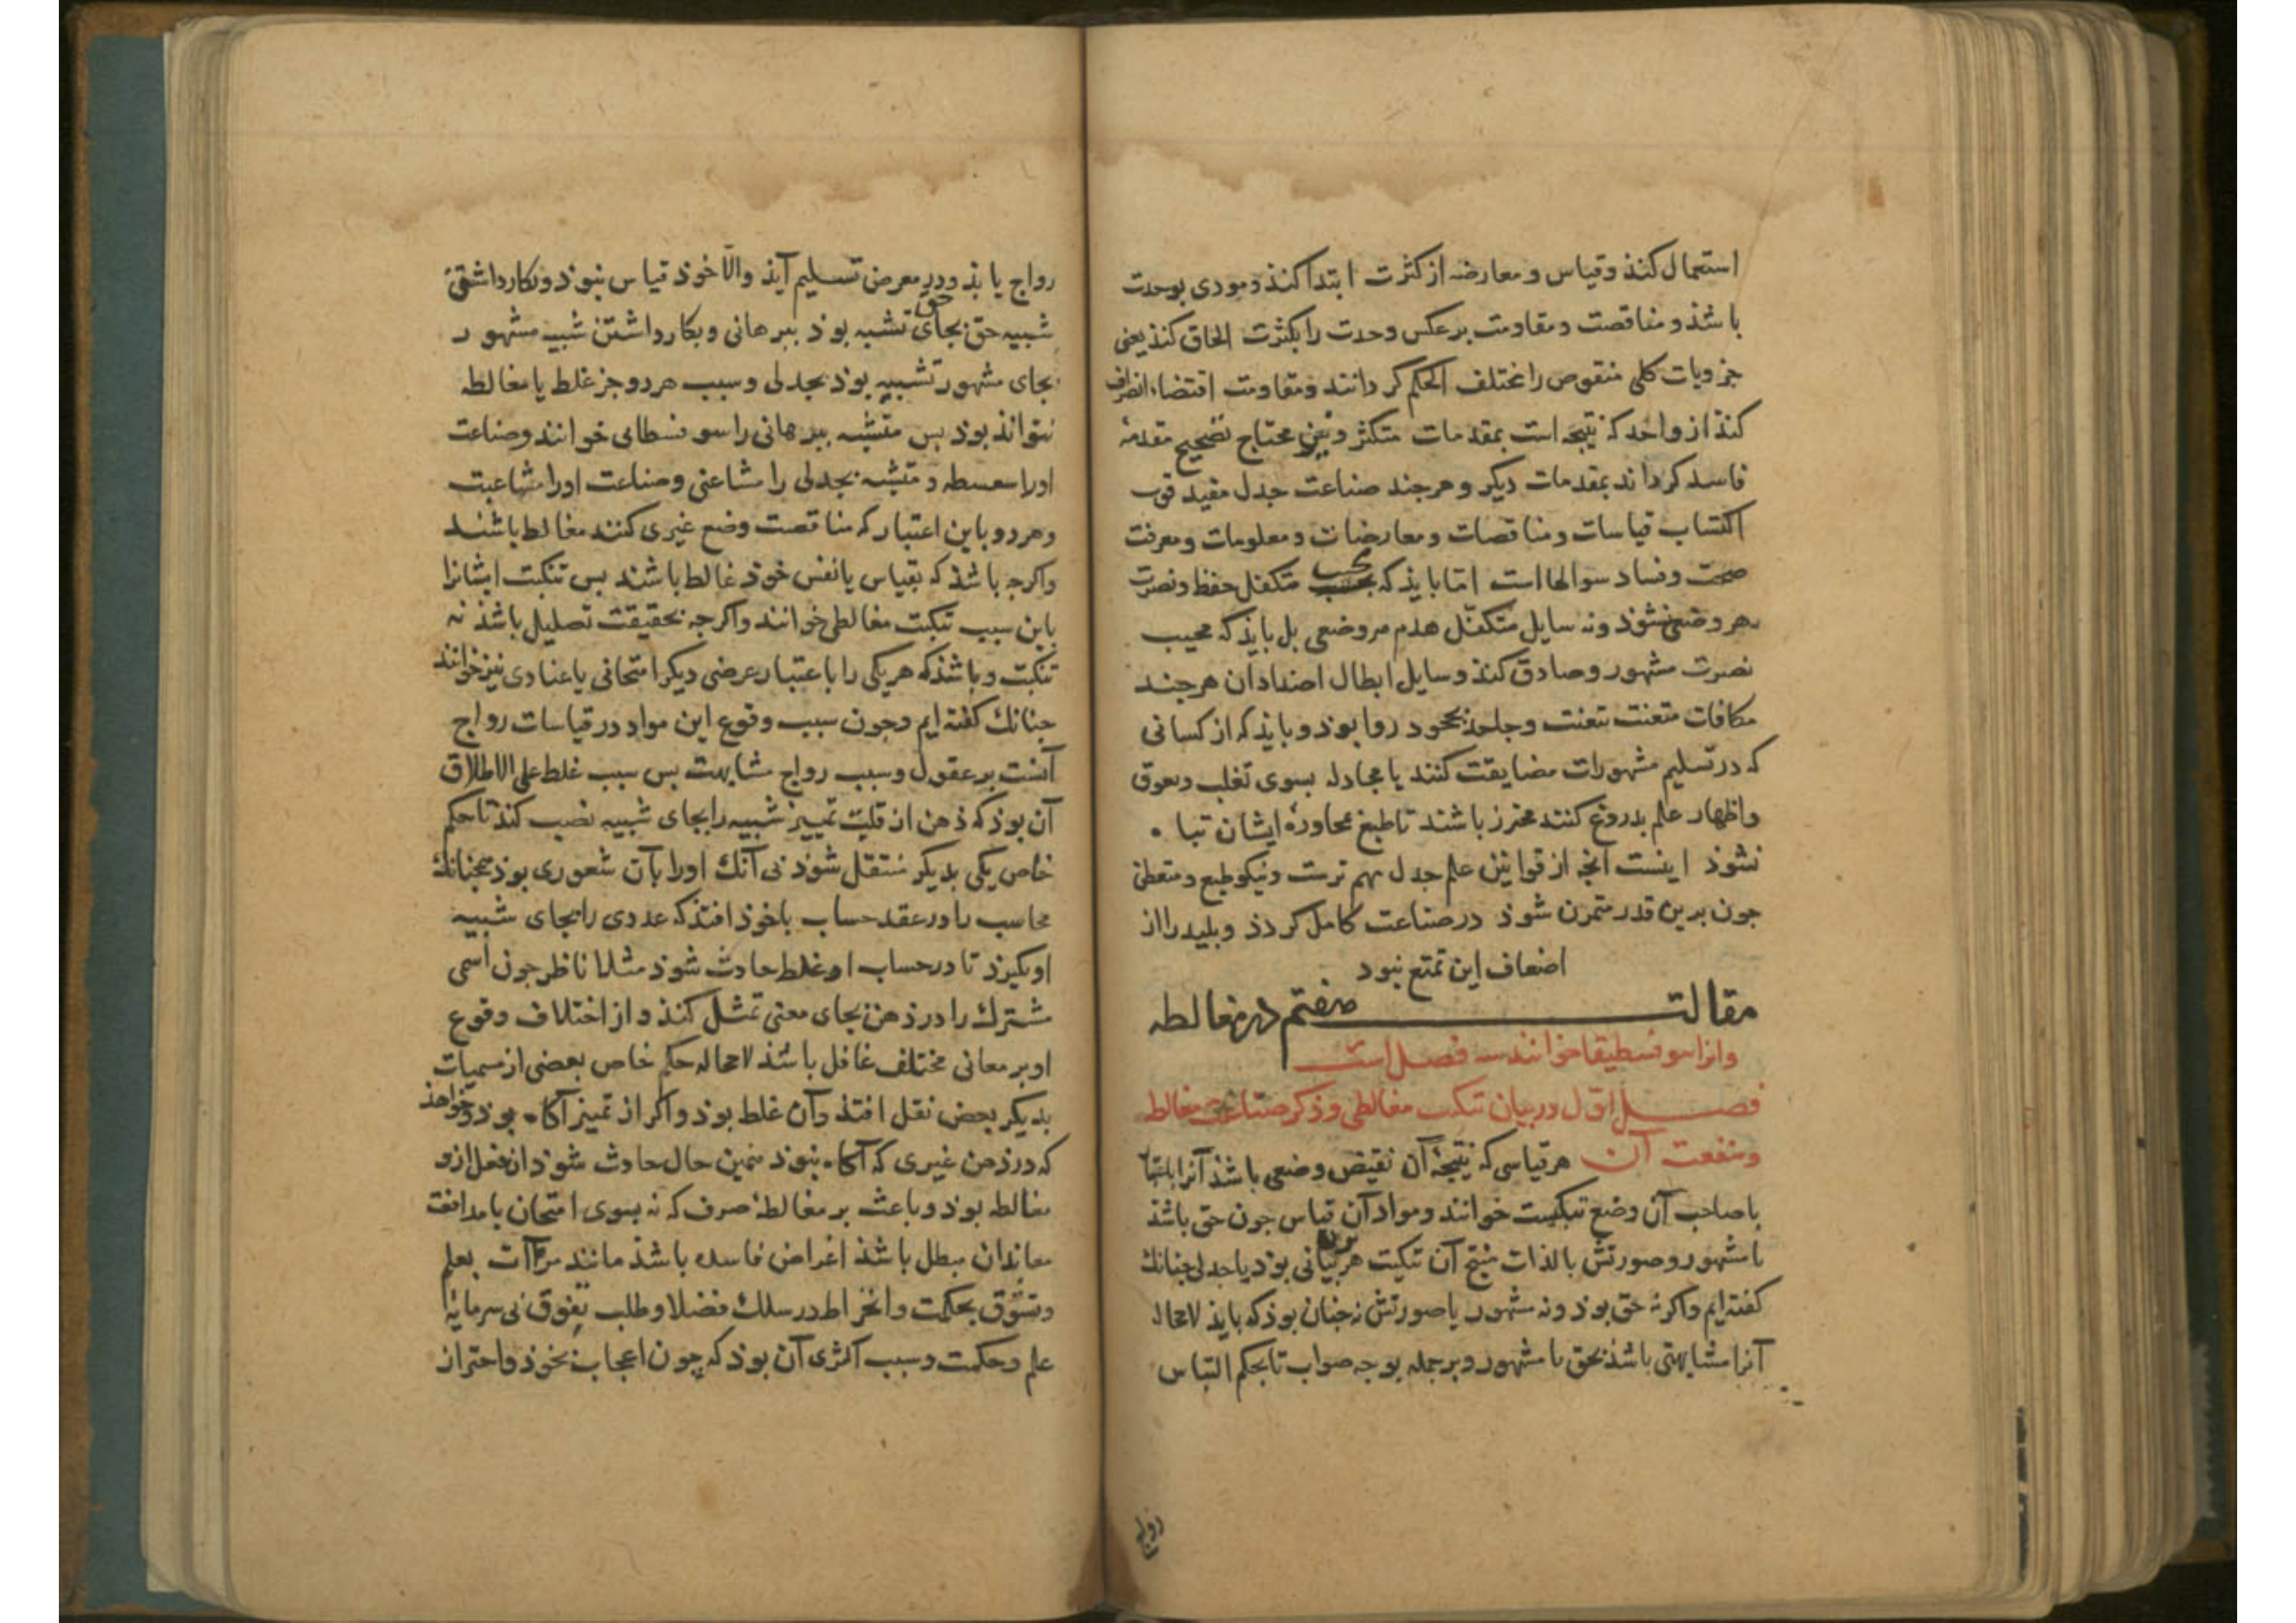 استعمال کنذ و قیاس و معارضه از کثرت ابتدا کنذ و مودی بوحدت
باشذ و مناقصت و مقاومت برعکس وحدت را بکثرت الحاق کنذ یعنی
جزویات کلی منقوض را مختلف الحکم کردانند و مقاومت اقتضاء انصراف
کنذ از واحد که نتیجه است بمقدمات متکثر و نیز محتاج تصحیح مقدمهٔ
فاسد کرداند بمقدمات دیکر و هرجند صناعت جدل مفید قوت
اکتساب قیاسات و مناقصات و معارضات و معلومات و معرفت
صحت و فساد سوالها است اما بایذ که مجیب متکفل حفظ و نصرت
هر وضعی نشوذ و نه سایل متکفّل هدم هر وضعی بل بایذ که مجیب
نصرت مشهور و صادق کنذ و سایل ابطال اضداد آن هرجند
مکافات متعنت بتعنت و جاحد بجحود روا بوذ و بایذ که از کسانی
که در تسلیم مشهورات مضایقت کنند یا مجادله بسوی تغلب و تفوق
و اظهار علم بدروغ کنند محترز باشند تا طبع محاورهٔ ایشان تباه
نشوذ اینست آنچه از قوانین علم جدل مهم ترست و نیکو طبع و متعطن
جون برین قدر متمرن شوذ در صناعت کامل کردذ و بلید را از
اضعاف این تمتع نبود
مقالت هفتم در مغالطه
و انرا سوفسطیقا خوانند سه فصل است
فصل اوّل در بیان تبکیت مغالطی و ذکر صناعت مغالط
و منفعت آن هر قیاسی که نتیجهٔ آن نقیض وضعی باشذ آنرا باعتبار
با صاحب آن وضع تبکیت خوانند و مواد آن قیاس جون حق باشذ
یا مشهور و صورتش بالذات منتج آن تبکیت برهانی بوذ یا جدلی جنانک
کفته ایم و اکر نه حق بوذ و نه مشهور یا صورتش نه جنان بوذ که بایذ لامحاله
آنرا مشابهتی باشذ بحق یا مشهور و بر جمله بوجه صواب تا بحکم التباس
رواج
رواج یابذ و در معرض تسلیم آیذ و الّا خوذ قیاس نبوذ و بکار داشتن
شبیه حق بجای حق تشبه بوذ ببرهانی و بکار داشتن شبیه مشهور
بجای مشهور تشبیه بوذ بجدلی و سبب هر دو جز غلط یا مغالطه
نتواند بوذ بس متشبه ببرهانی را سوفسطایی خوانند و صناعت
او را سفسطه و متشبه بجدلی را مشاغبی و صناعت او را مشاغبت
و هر دو باین اعتبار که مناقصت وضع غیری کنند مغالط باشند
و اکرجه باشذ که بقیاس با نفس خوذ غالط باشند بس تبکیت ایشانرا
باین سبب تبکیت مغالطی خوانند و اکرجه بحقیقت تضلیل باشذ نه
تبکیت و باشذ که هر یکی را باعتبار عرضی دیکر امتحانی یا عنادی نیز خوانند
جنانک کفته ایم و جون سبب وقوع این مواد در قیاسات رواج
آنست بر عقول و سبب رواج مشابهت بس سبب غلط علی الاطلاق
آن بوذ که ذهن از قلّت تمییز شبیه را بجای شبیه نصب کنذ تا حکم
خاص یکی بدیکر منتقل شوذ بی آنک او را بآن شعوری بوذ همچنانک
محاسب را در عقد حساب با خوذ افتذ که عددی را بجای شبیه
او بکیرذ تا در حساب او غلط حادث شوذ مثلا ناظر جون اسمی
مشترک را در ذهن بجای معنی تمثل کنذ و از اختلاف وقوع
او بر معانی مختلف غافل باشذ لامحاله حکم خاص بعضی از مسمیات
بدیکر بعض نقل افتذ و آن غلط بوذ و اکر از تمییز آکاه بوذ و خواهذ
که در ذهن غیری که آکاه نبوذ همین حال حادث شوذ آن فعل ازو
مغالطه بوذ و باعث بر مغالطهٔ صرف که نه بسوی امتحان یا مدافعت
معاندان مبطل باشذ اغراض فاسده باشذ مانند مراآت بعلم
و تشوّق بحکمت و انخراط در سلک فضلا و طلب تفوق بی سرمایهٔ
علم و حکمت و سبب اکثری آن بوذ که جون اعجاب بخوذ و احتراز